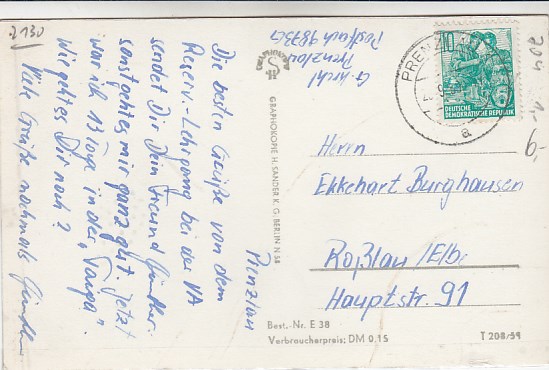 z 130
Prenzlau
Die besten Grüße von dem
Reserv.-Lehrgang bei der VA
sendet Dir Dein Freund Günther.
sonst geht es mir ganz gut. Jetzt
war ich 13 Tage in der „Taiga".
Wie geht es Dir noch?
Viele Grüße nochmals Günther
GRAPHOKOPIE H. SANDER K. G. BERLIN N 54
Prenzlau
Postfach 9883 G
PRENZLAU
a
10
5
DEUTSCHE
DEMOKRATISCHE REPUBLIK
204
1.-
6,-
Herrn
Ekkehart Burghausen
Roßlau/Elbe
Hauptstr. 91
Best.-Nr. E 38
Verbraucherpreis: DM 0,15
T 208/59